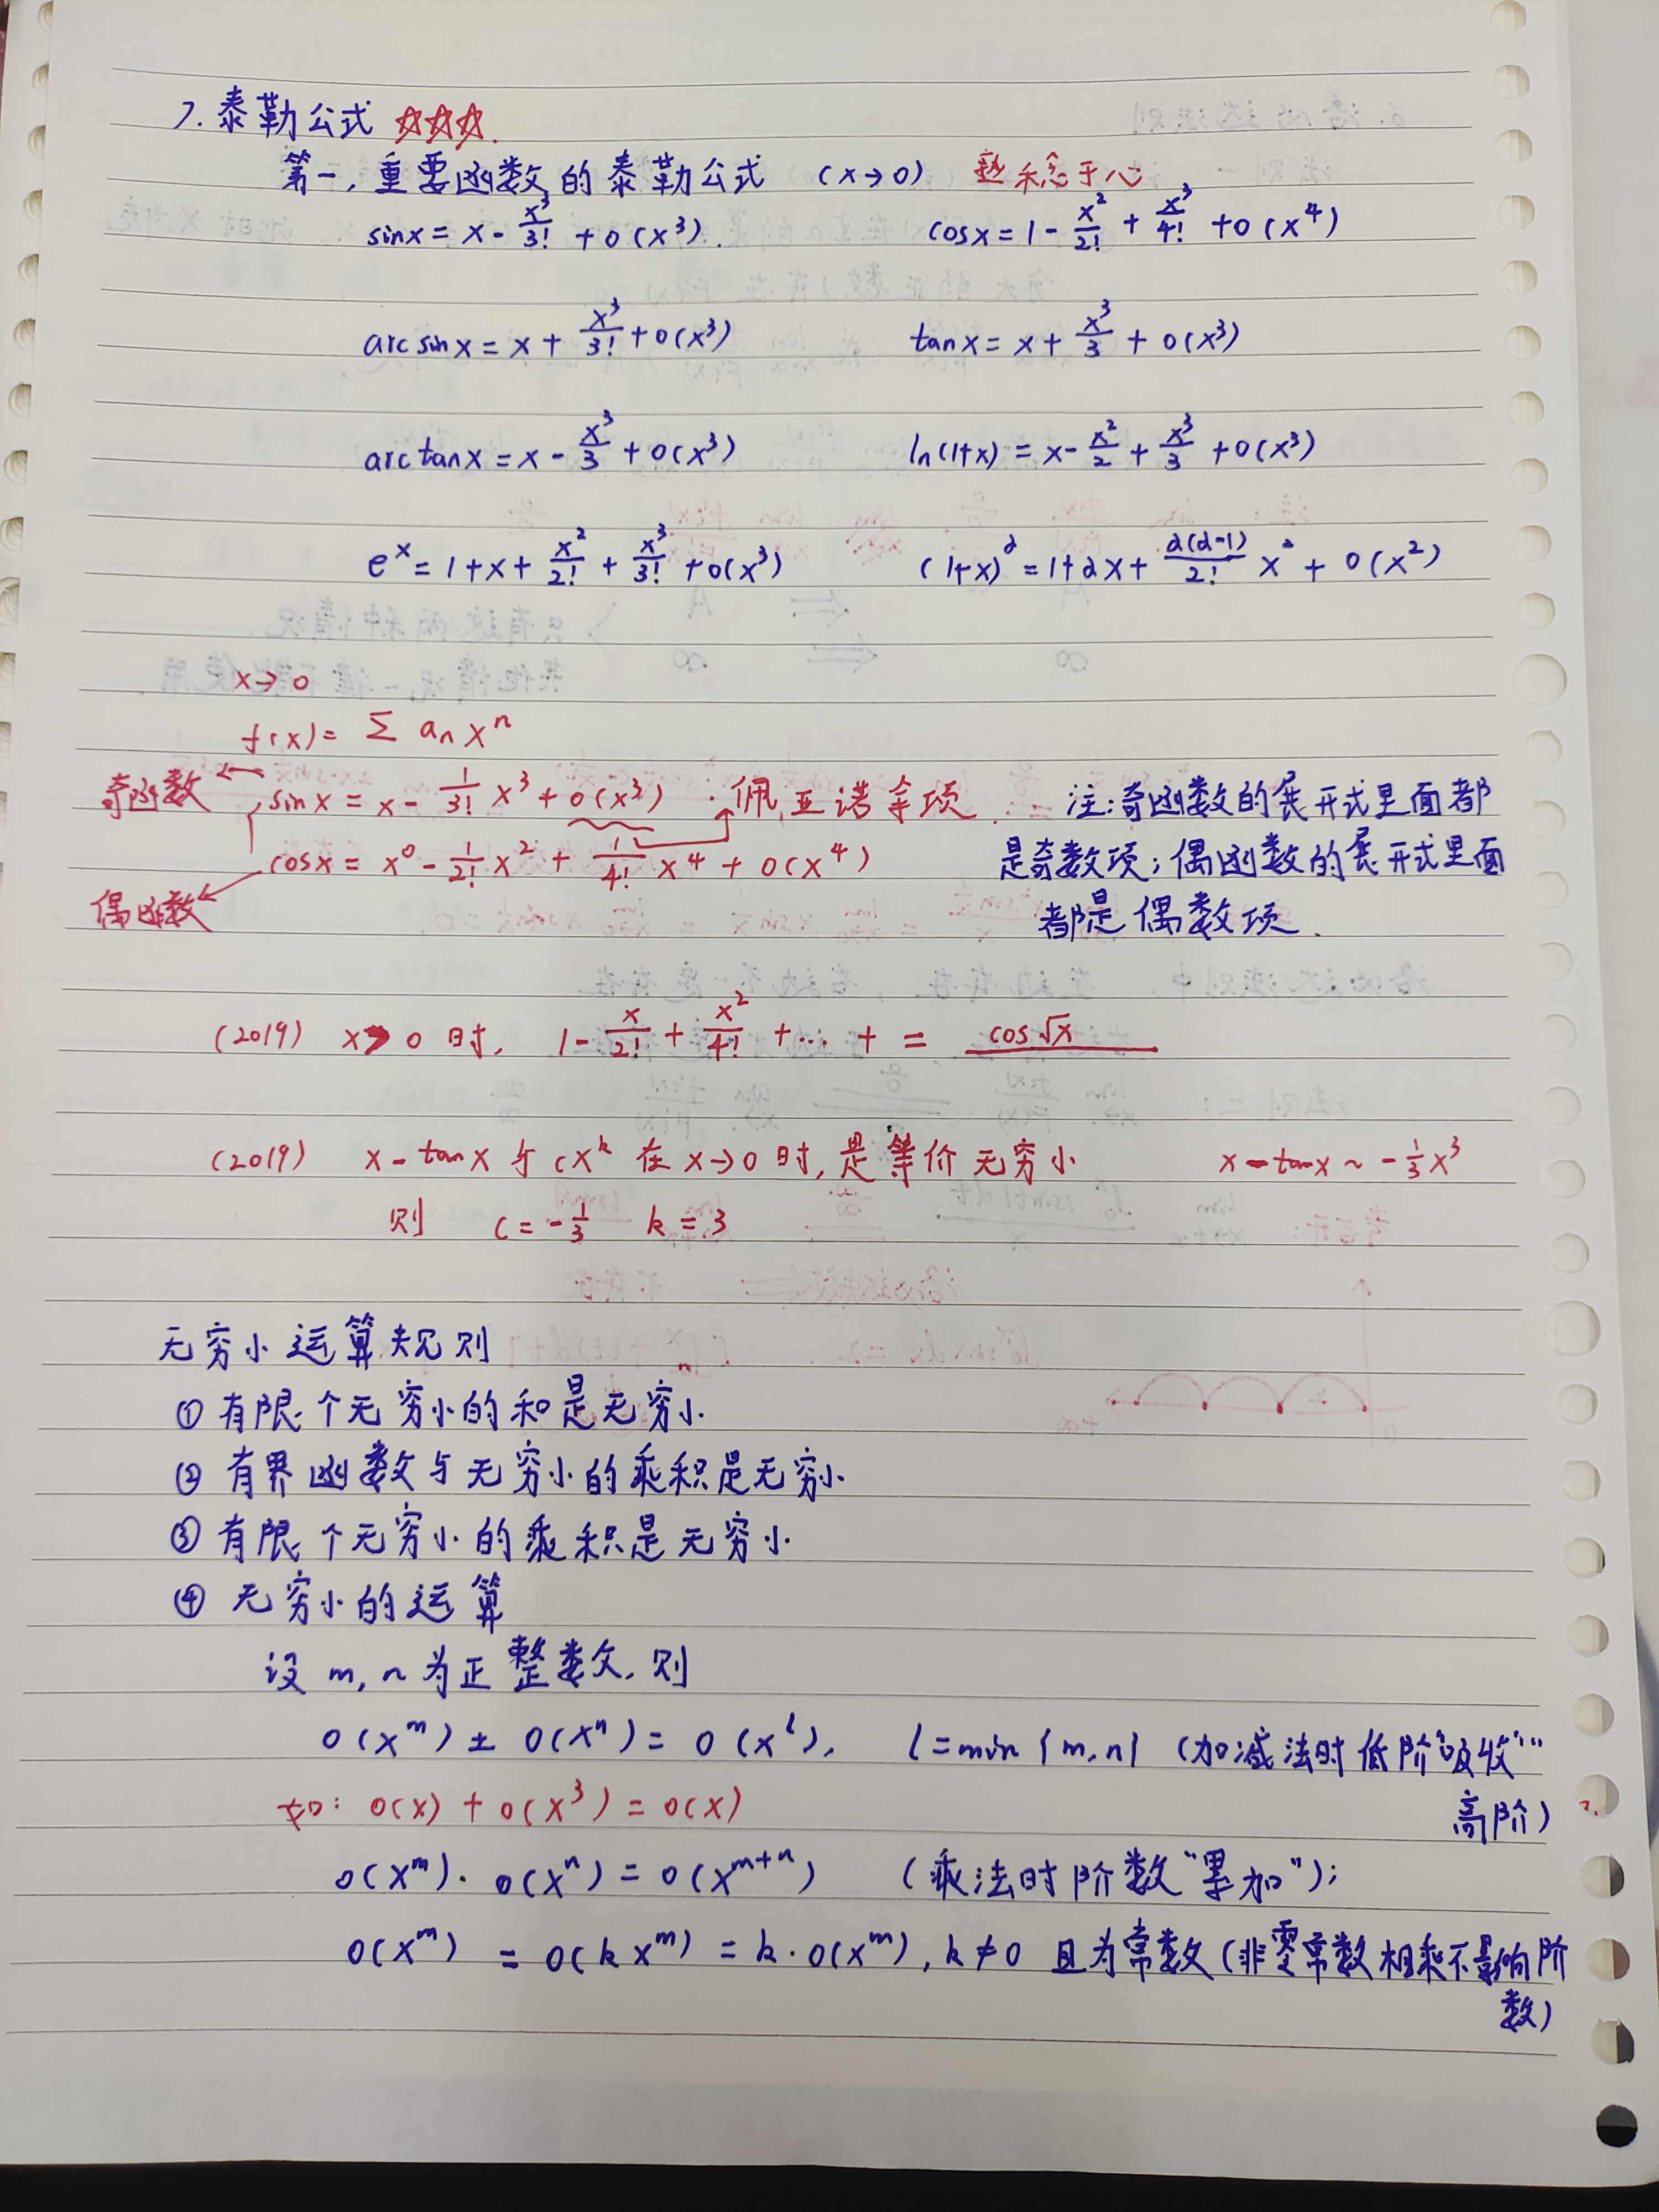 7. 泰勒公式 ☆☆☆.
第一, 重要函数的泰勒公式 (x→0) 熟稔于心
sinx = x - x³/3! + o(x³). cosx = 1 - x²/2! + x³/4! + o(x⁴)
arcsinx = x + x³/3! + o(x³) tanx = x + x³/3 + o(x³)
arctanx = x - x³/3 + o(x³) ln(1+x) = x - x²/2 + x³/3 + o(x³)
eˣ = 1 + x + x²/2! + x³/3! + o(x³) (1+x)^α = 1 + αx + α(α-1)/2! x² + o(x²)
x→0
f(x) = Σ aₙ xⁿ
奇函数 ← sinx = x - 1/3! x³ + o(x³) · 佩亚诺拿项. 注:奇函数的展开式里面都
cosx = x⁰ - 1/2! x² + 1/4! x⁴ + o(x⁴) 是奇数项; 偶函数的展开式里面
偶函数 ← 都是偶数项.
(2019) x>0 时, 1 - x/2! + x²/4! + ... + = cos√x
(2019) x - tanx 与 cxᵏ 在 x→0 时, 是等价无穷小 x - tanx ~ -1/3 x³
则 c = -1/3 k = 3
无穷小运算规则
① 有限个无穷小的和是无穷小.
② 有界函数与无穷小的乘积是无穷小
③ 有限个无穷小的乘积是无穷小.
④ 无穷小的运算
设 m, n 为正整数, 则
o(xᵐ) ± o(xⁿ) = o(xˡ), l = min{m,n} (加减法时低阶"吸收"
如: o(x) + o(x³) = o(x) 高阶)
o(xᵐ) · o(xⁿ) = o(xᵐ⁺ⁿ) (乘法时阶数"累加");
o(xᵐ) = o(kxᵐ) = k·o(xᵐ), k≠0 且为常数 (非零常数相乘不影响阶
数)